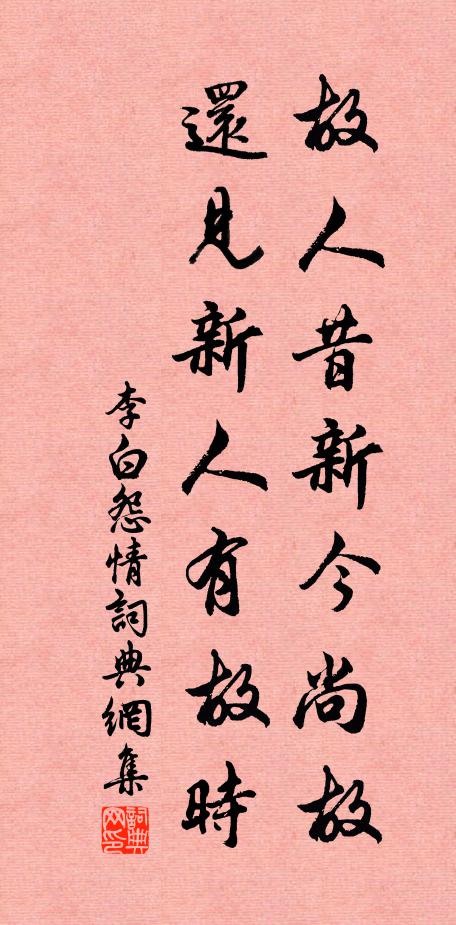 故人昔新今尚故
還見新人有故時
李白怨情詞典網集
詞典网印